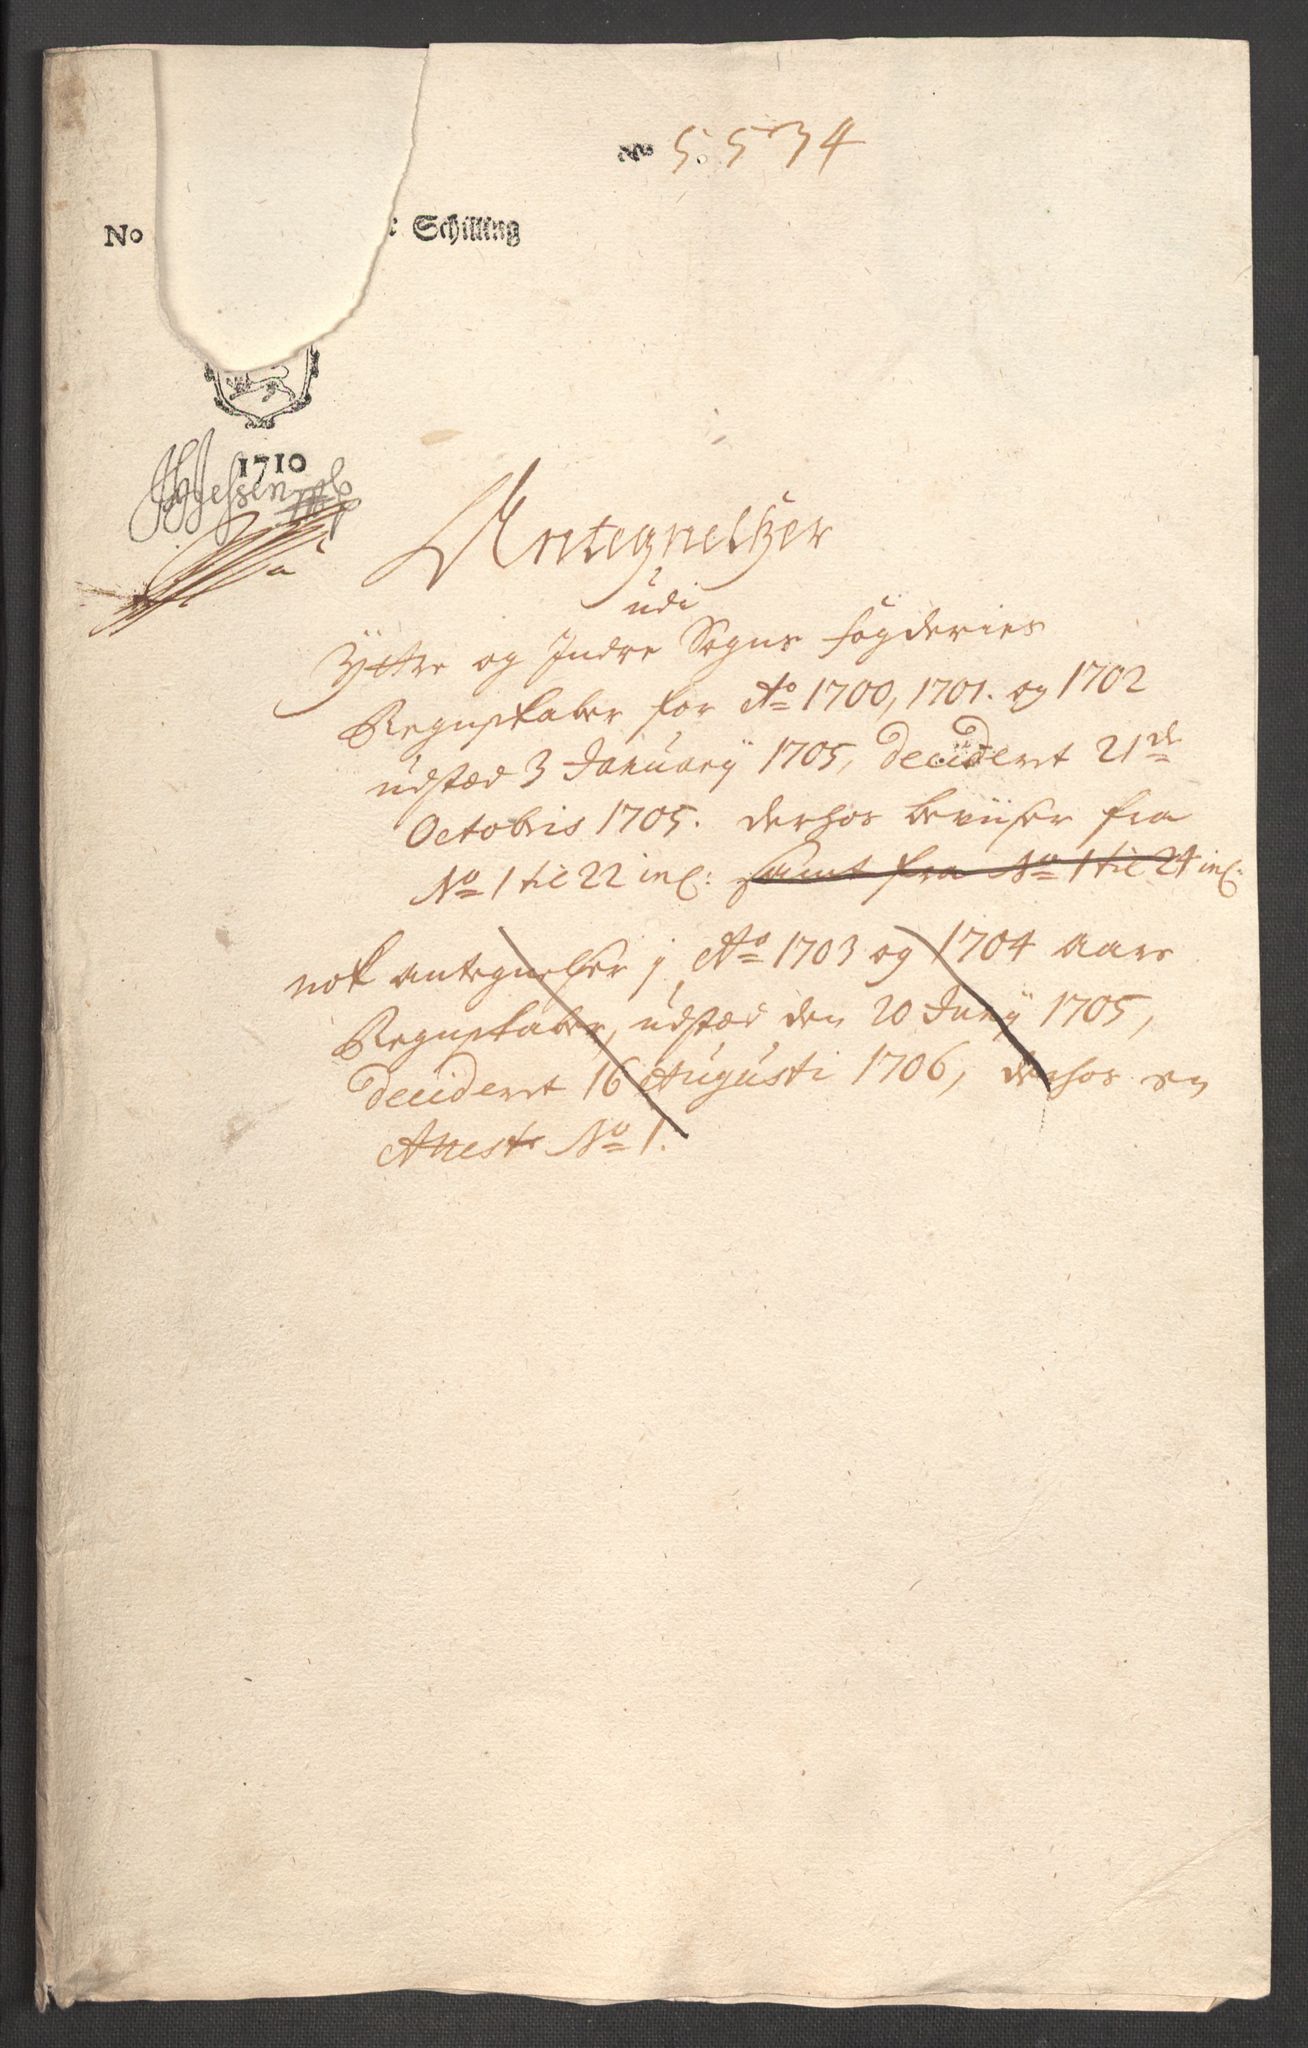 No 5.534
No : Schilling
1710
HJessen
Antegnelser
udi
Yttre og Indre Sogns fogderies
Regnskaber for Ao 1700, 1701. og 1702
udstæd 3 January 1705, decideret 21de
Octobris 1705. derhos beviiser fra
No 1 til 22 inc: samt fra No 1 til 24 inc:
nok antegnelser j Ao 1703 og 1704 aars
Regnskaber, udstæd den 20 Juny 1705,
decideret 16 Augusti 1706, derhos en
Attest No 1.